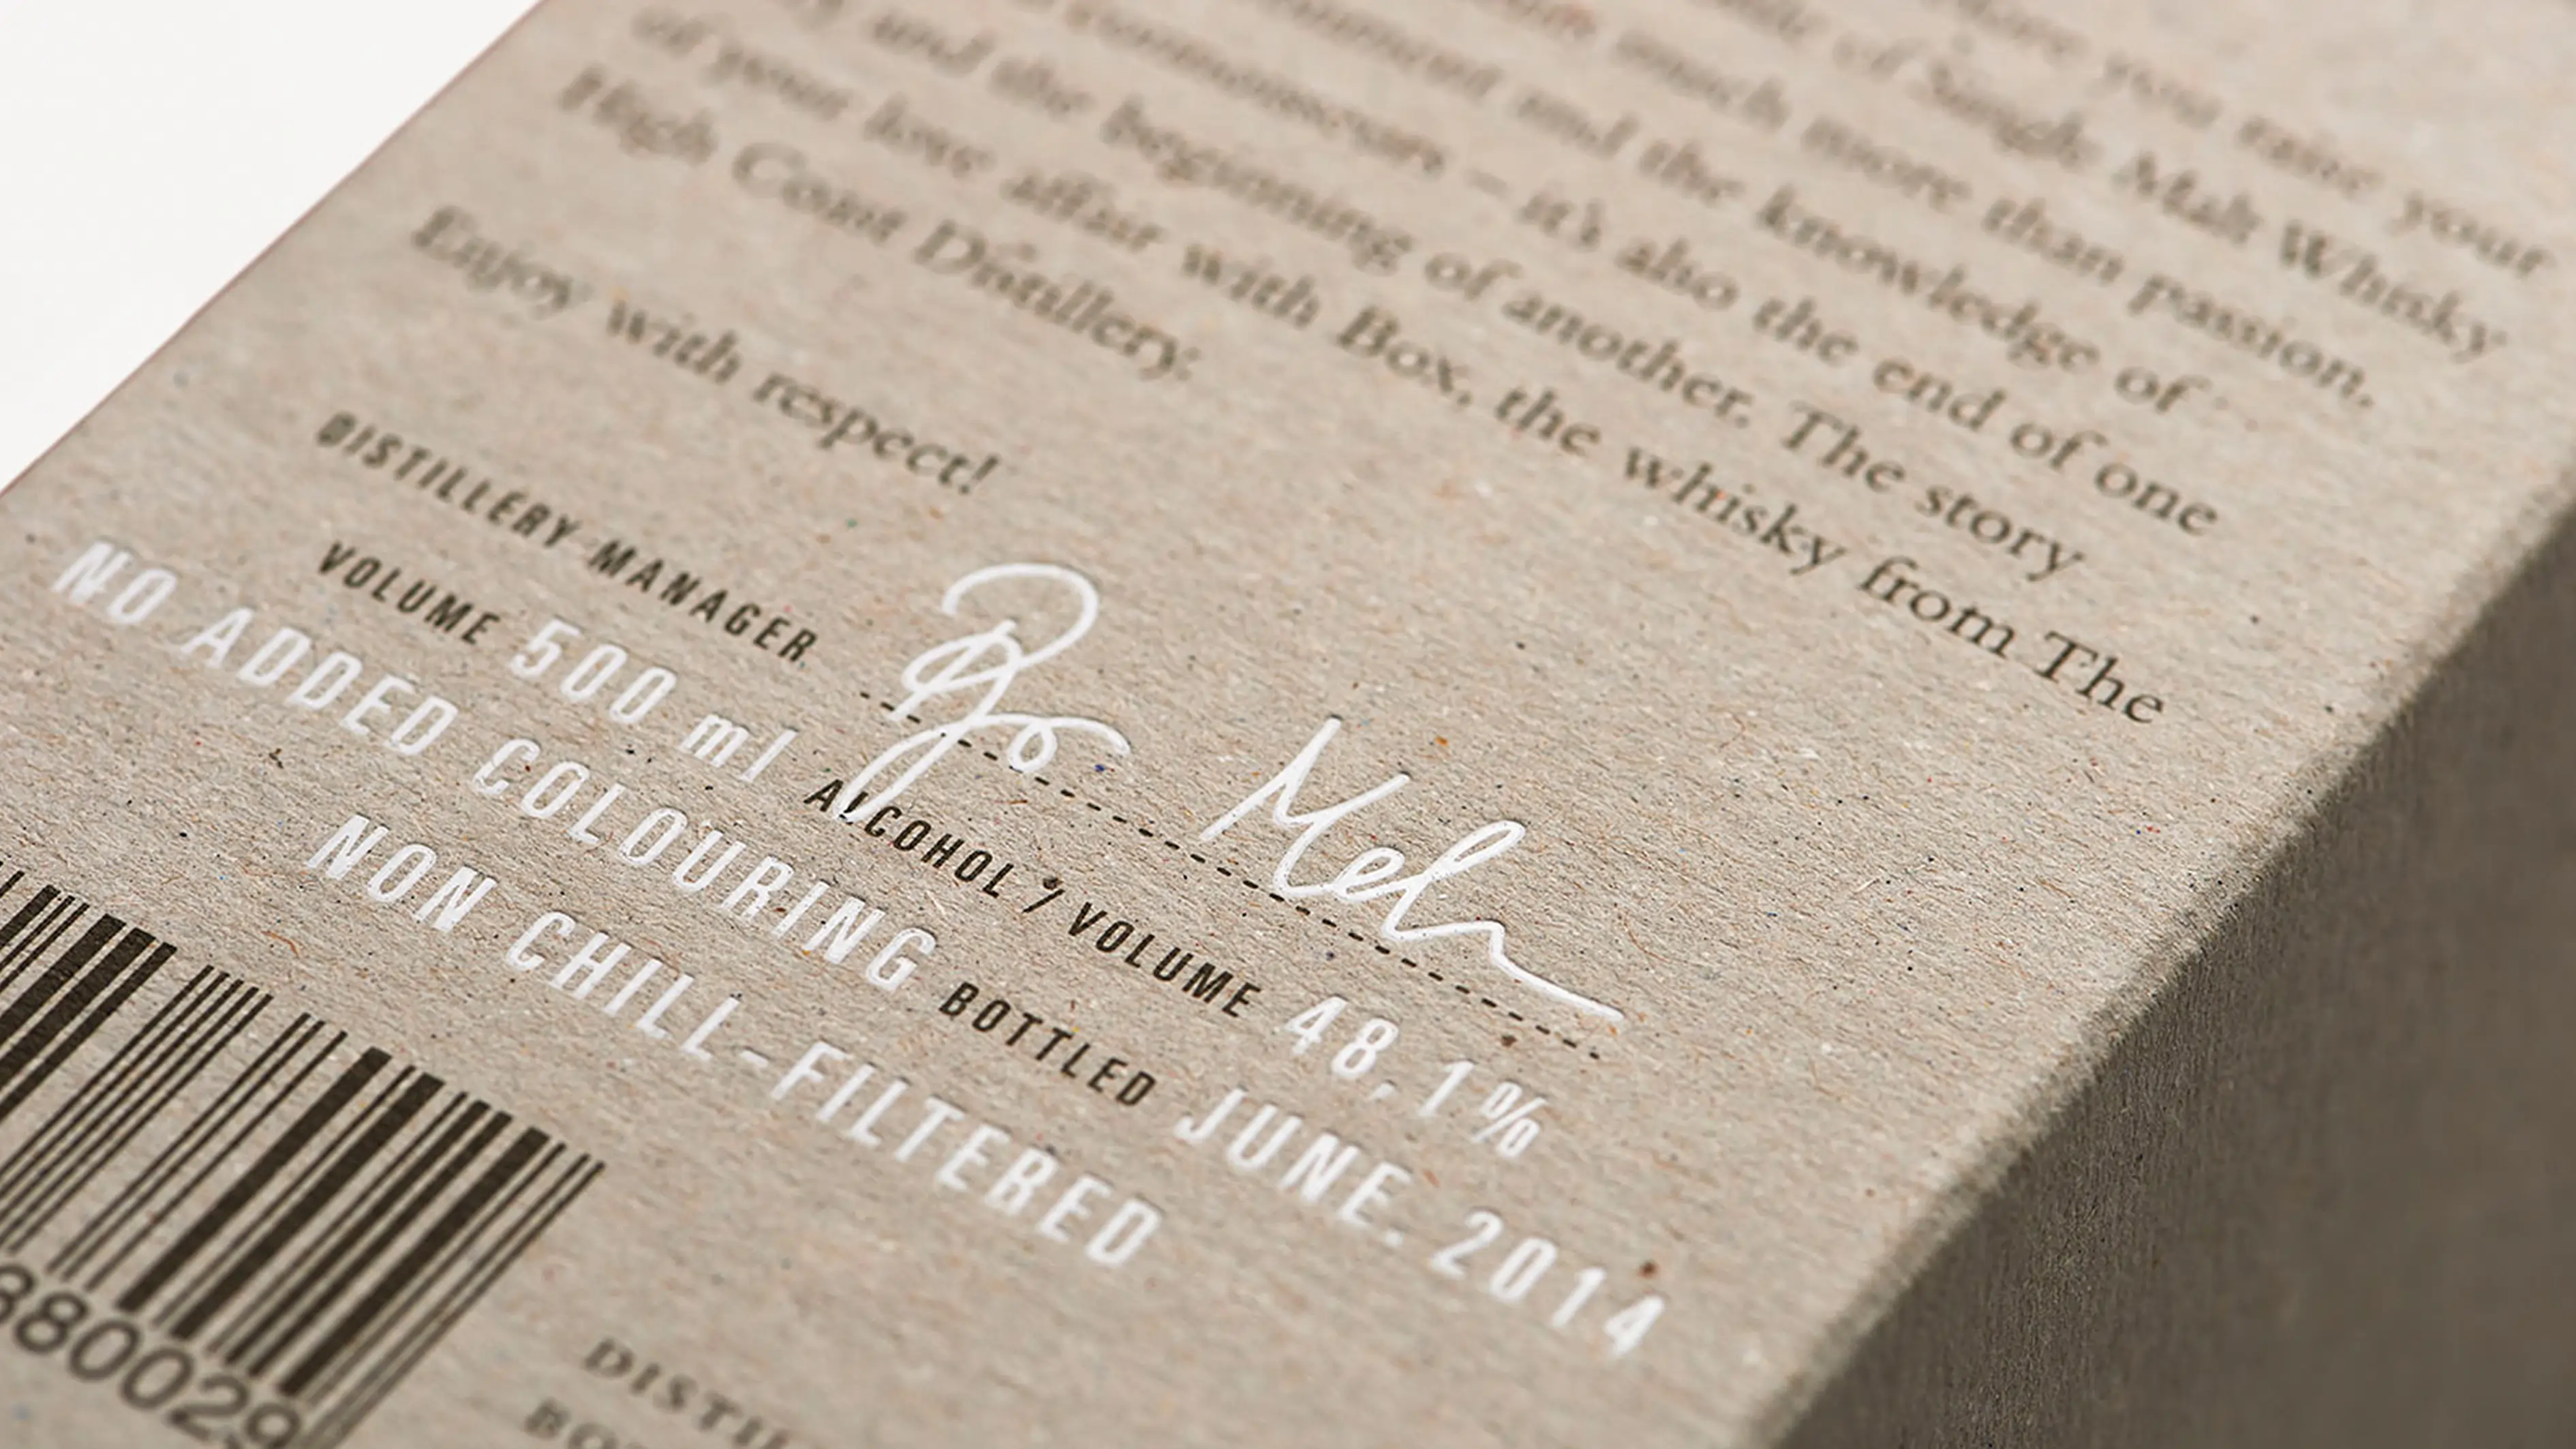 before you raise your
of Single Malt Whisky
much more than passion,
and the knowledge of
connoisseurs – it's also the end of one
and the beginning of another. The story
of your love affair with Box, the whisky from The
High Coast Distillery.
Enjoy with respect!
DISTILLERY MANAGER
VOLUME 500 ml ALCOHOL / VOLUME 48,1%
NO ADDED COLOURING BOTTLED JUNE. 2014
NON CHILL-FILTERED
880029